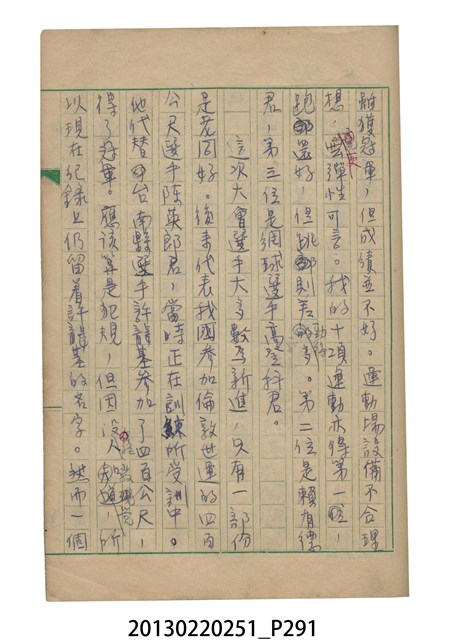 雖獲冠軍，但成績並不好。運動場設備不合理
想，無彈性可言。我的十項運動亦得第一位，
跑還好，但跳則差勁。第二位是賴有德
君，第三位是網球選手高空科君。
這次大會選手大多數為新進，只有一部份
是老同好。後來代表我國參加倫敦世運的四百
公尺選手陳英郎君，當時正在訓練所受訓中。
他代替台南縣選手許龍基參加了四百公尺，
得了冠軍。應該算是犯規，但因沒人發覺，所
以現在紀錄上仍留着許龍基的名字。然而一個
20130220251_P291